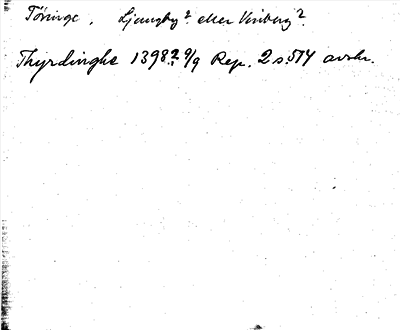 Töringe, Ljungby? eller Vinberg?
Thyrdinghe 1398? 9/9 Rep. 2 s. 574 avskr.